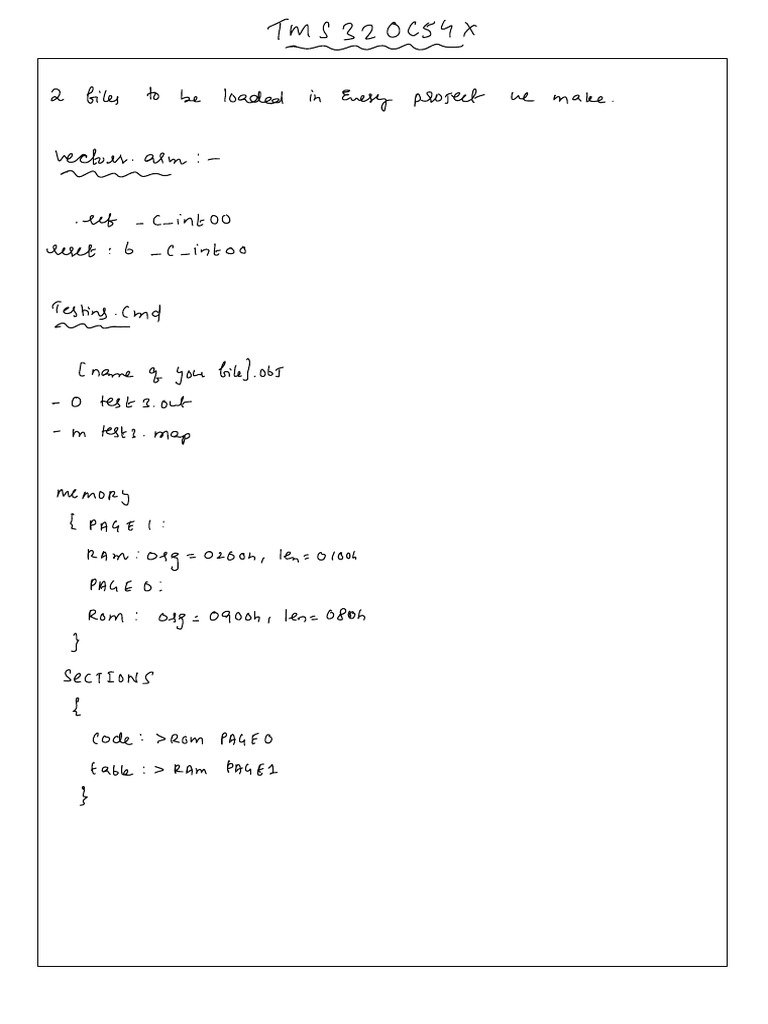 TMS320C54X
2 files to be loaded in Every project we make.
vector.asm :-
.ref _c_int00
reset : b _c_int00
Testing.cmd
[name of your file].obj
- o test3.out
- m test3.map
MEMORY
{ PAGE 1:
RAM : org = 0200h, len = 0100h
PAGE 0:
ROM : org = 0900h, len = 080h
}
SECTIONS
{
code : > ROM PAGE0
table : > RAM PAGE1
}